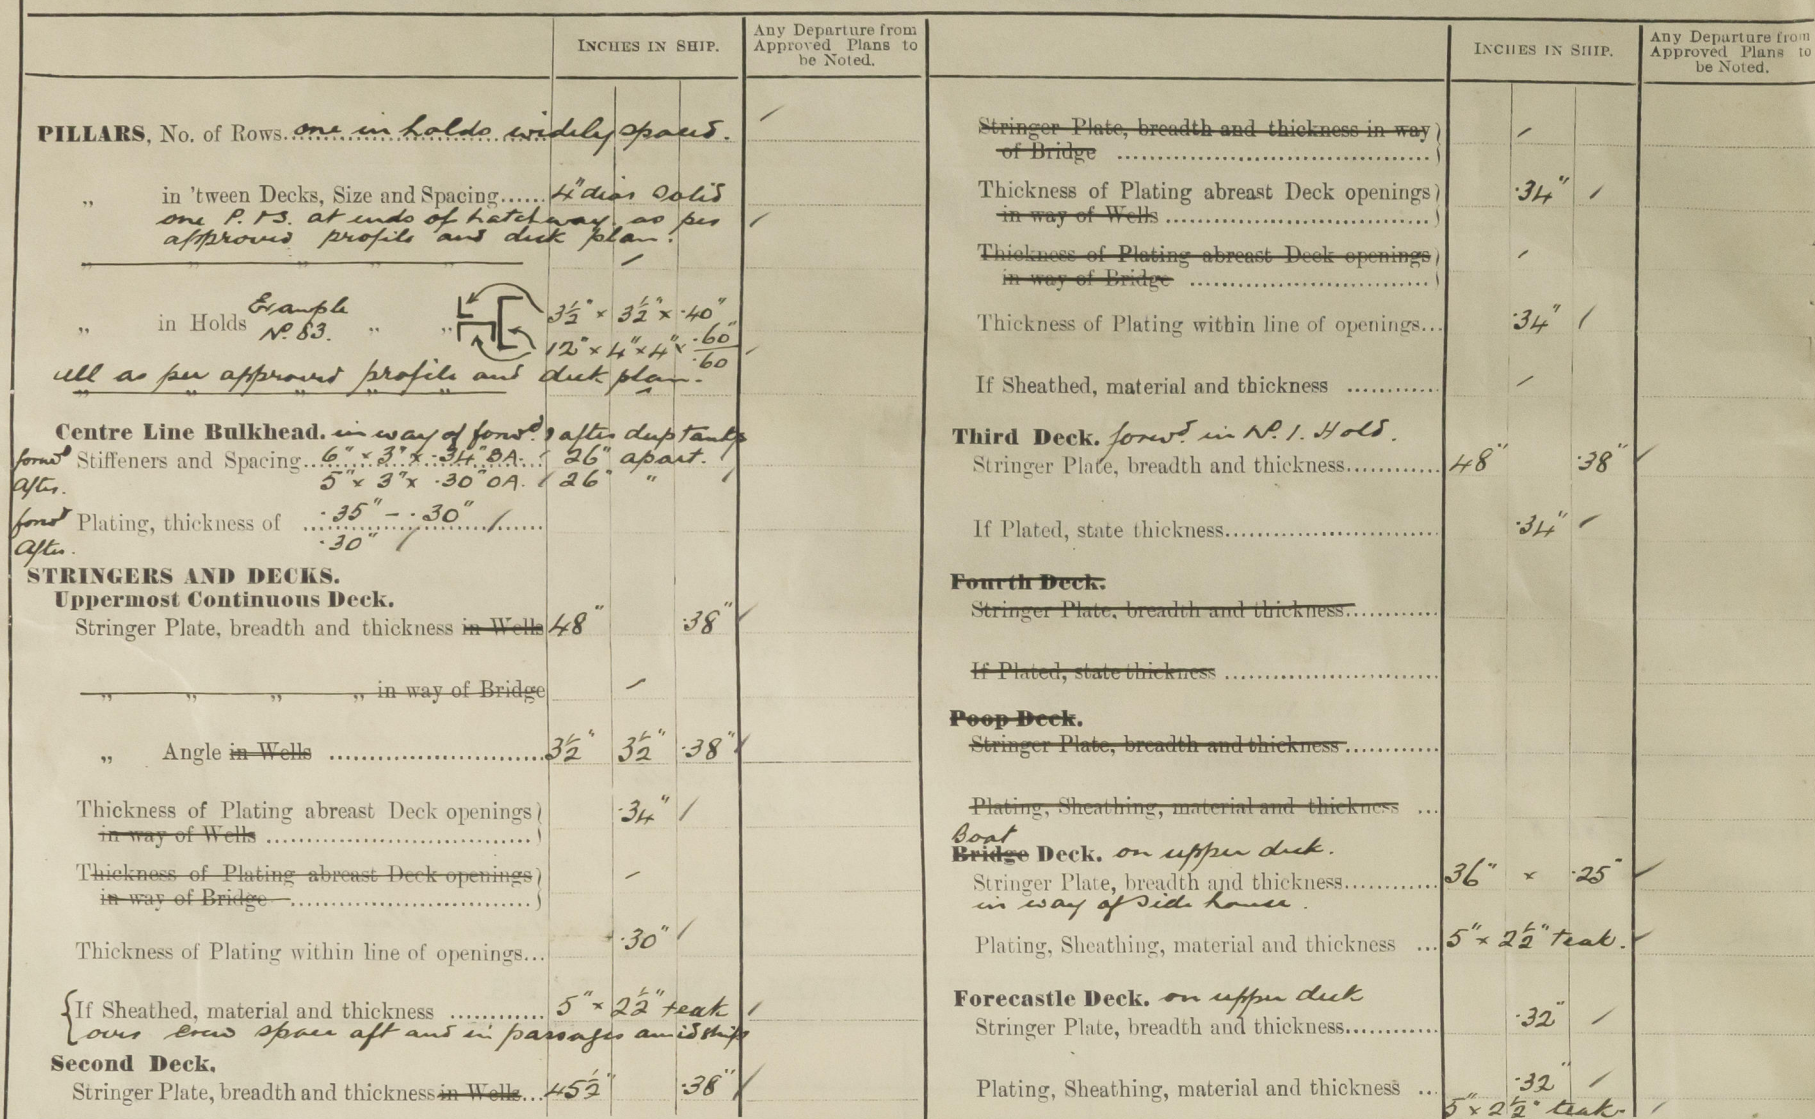 INCHES IN SHIP.
Any Departure from
Approved Plans to
be Noted.
PILLARS, No. of Rows one in holds widely spaced.
„ in 'tween Decks, Size and Spacing...... 4" dia solid
one P. & S. at ends of hatchway as per
approved profile and deck plan.
„ „ „ „ „ /
„ in Holds Example No. 83. „ „ 3½" × 3½" × .40"
12" × 4" × 4" × .60"/.60
all as per approved profile and deck plan.
„ „ „ „ „
Centre Line Bulkhead. in way of forwd. & after deep tanks
forwd Stiffeners and Spacing... 6" × 3" × .34" BA. / 26" apart. /
After. 5" × 3" × .30" OA. / 26" „ /
forwd Plating, thickness of .35" - .30" /
After. .30" /
STRINGERS AND DECKS.
Uppermost Continuous Deck.
Stringer Plate, breadth and thickness in Wells 48" .38" /
„ „ „ „ in way of Bridge /
„ Angle in Wells ........ 3½" 3½" .38" /
Thickness of Plating abreast Deck openings) .34" /
in way of Wells ........)
Thickness of Plating abreast Deck openings) /
in way of Bridge ........)
Thickness of Plating within line of openings... .30" /
If Sheathed, material and thickness ............ 5" × 2½" teak /
over crew space aft and in passages amidships
Second Deck.
Stringer Plate, breadth and thickness in Wells... 45½" .38" /
INCHES IN SHIP.
Any Departure from
Approved Plans to
be Noted.
Stringer Plate, breadth and thickness in way) /
of Bridge ........)
Thickness of Plating abreast Deck openings) .34" /
in way of Wells ........)
Thickness of Plating abreast Deck openings) /
in way of Bridge ........)
Thickness of Plating within line of openings... .34" /
If Sheathed, material and thickness ............ /
Third Deck. forwd. in No. 1. Hold.
Stringer Plate, breadth and thickness............ 48" .38" /
If Plated, state thickness............ .34" /
Fourth Deck.
Stringer Plate, breadth and thickness............
If Plated, state thickness ............
Poop Deck.
Stringer Plate, breadth and thickness............
Plating, Sheathing, material and thickness ...
Boat
Bridge Deck. on upper deck.
Stringer Plate, breadth and thickness............ 36" × .25" /
in way of side house.
Plating, Sheathing, material and thickness ... 5" × 2½" teak. /
Forecastle Deck. on upper deck
Stringer Plate, breadth and thickness............ .32" /
Plating, Sheathing, material and thickness ... .32" /
5" × 2½" teak. /